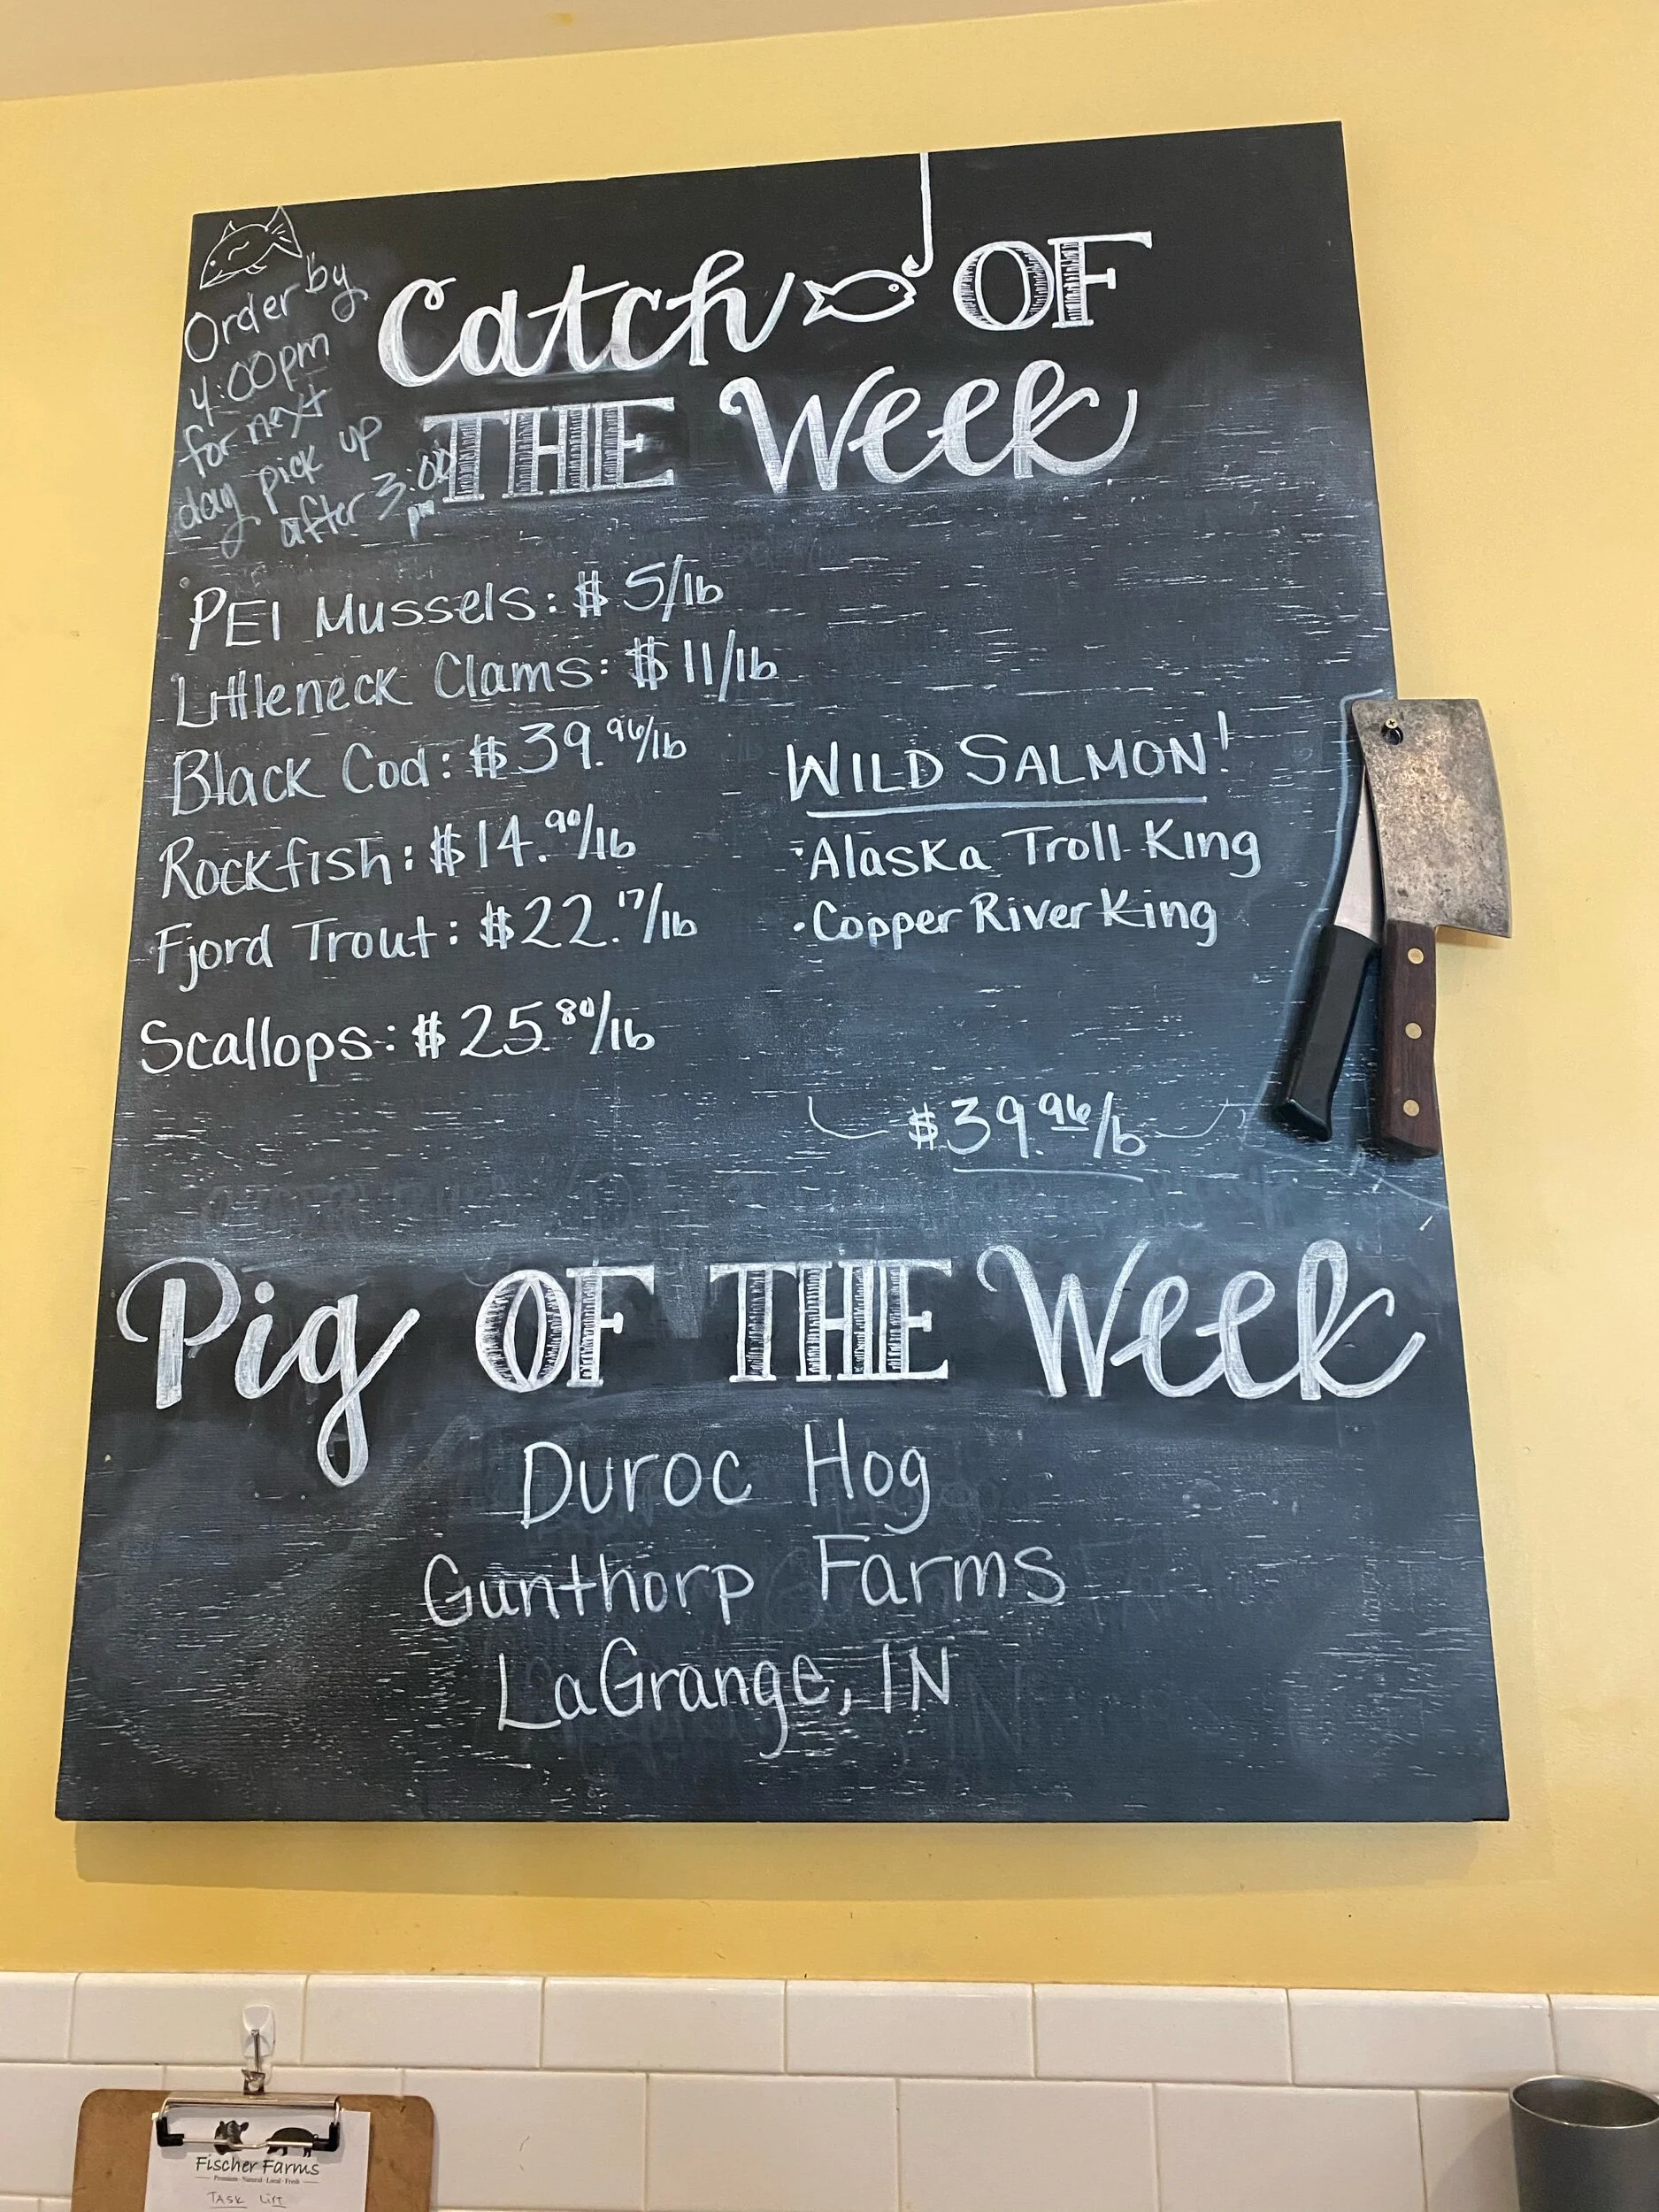 Order by
4:00pm
for next
day pick up
after 3:00
pm
Catch OF
THE Week
PEI Mussels: $5/lb
Littleneck Clams: $11/lb
Black Cod: $39.96/lb
Rockfish: $14.90/lb
Fjord Trout: $22.17/lb
Scallops: $25.80/lb
WILD SALMON!
·Alaska Troll King
·Copper River King
$39.96/lb
Pig OF THE Week
Duroc Hog
Gunthorp Farms
LaGrange, IN
Fischer Farms
Premium · Natural · Local · Fresh
TASK LIST